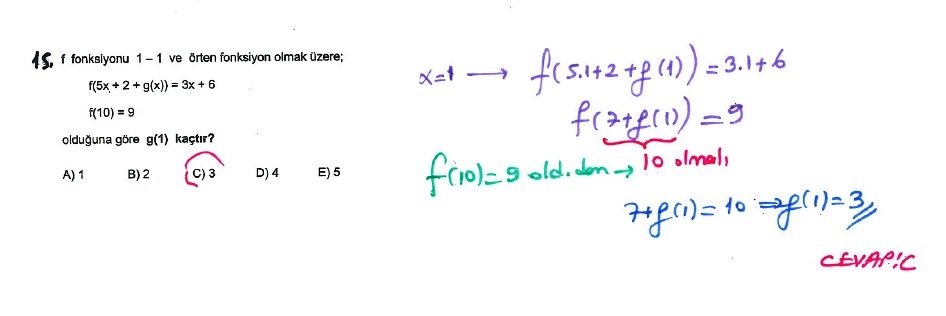 15. f fonksiyonu 1 – 1 ve örten fonksiyon olmak üzere;
f(5x + 2 + g(x)) = 3x + 6
f(10) = 9
olduğuna göre g(1) kaçtır?
A) 1 B) 2 C) 3 D) 4 E) 5
x=1 → f(5.1+2+g(1)) = 3.1+6
f(7+g(1)) = 9
10 olmalı
f(10)=9 old.dan →
7+g(1)=10 ⇒ g(1)=3
CEVAP:C